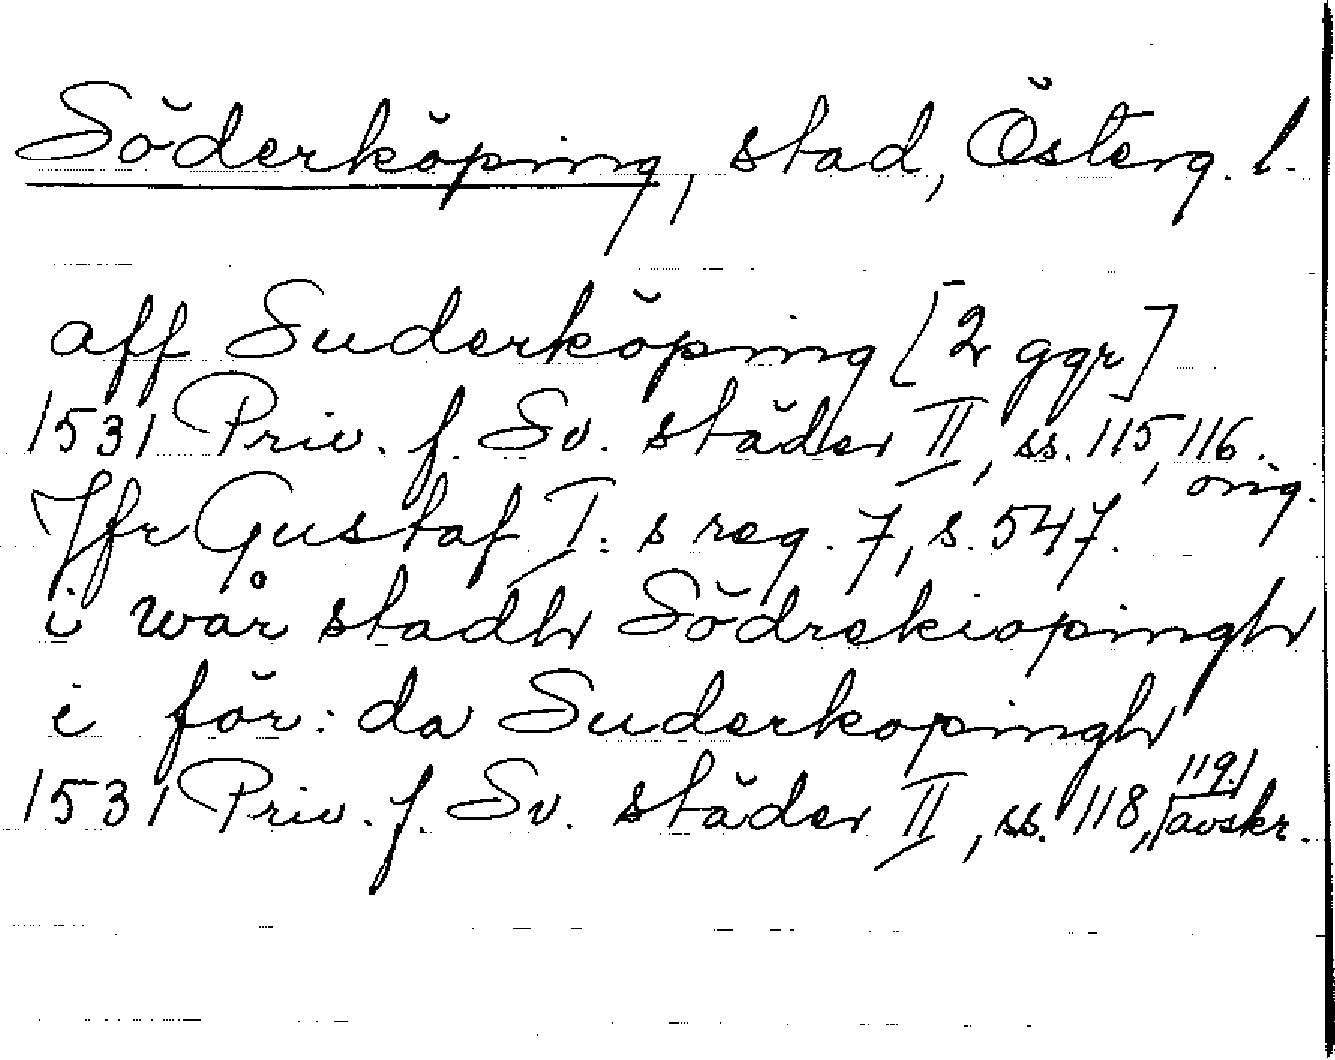 Söderköping, stad, Österg. l.
aff Suderköping [2 ggr]
1531 Priv. f. Sv. städer II, ss. 115, 116.
orig.
Jfr Gustaf I: s reg. 7, s. 547.
i wår stadh Södrekiopingh
i för: da Suderkopingh
1531 Priv. f. Sv. städer II, ss. 118, 119. avskr.